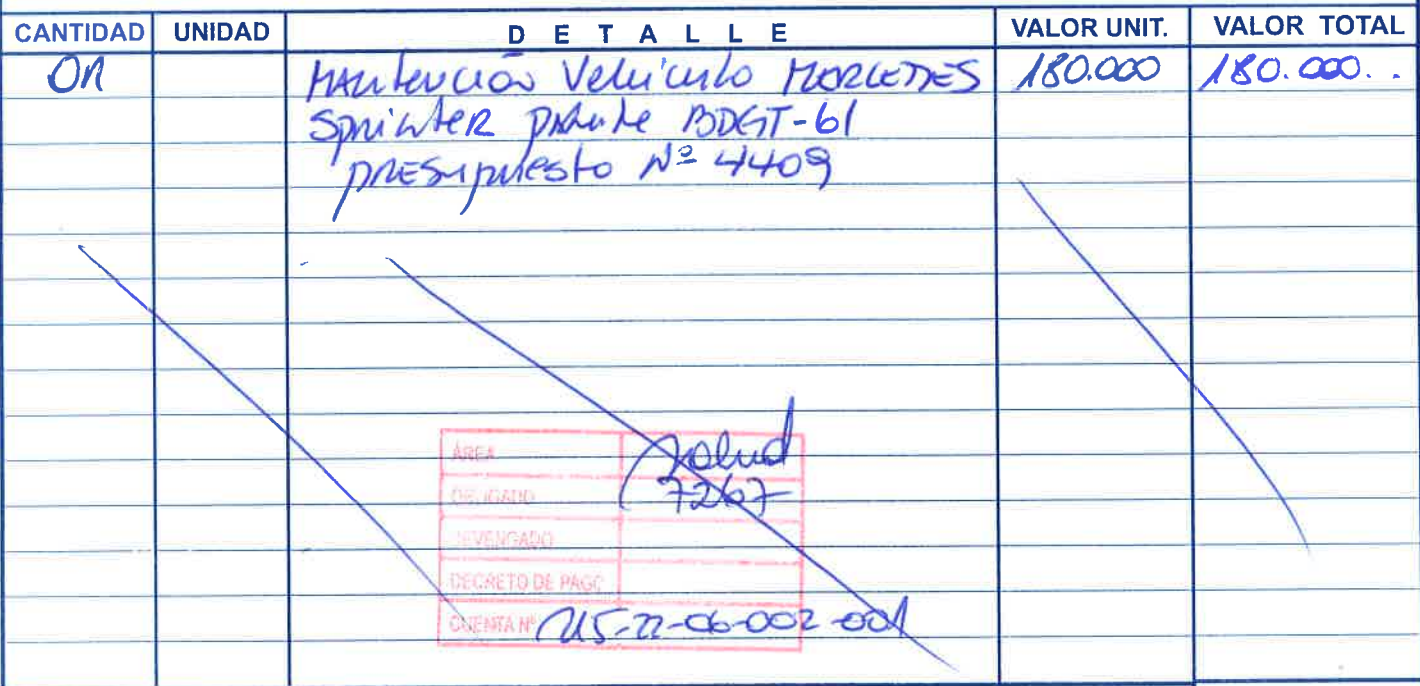 CANTIDAD UNIDAD DETALLE VALOR UNIT. VALOR TOTAL
01 Mantención Vehículo MERCEDES 180.000 180.000..
Sprinter patente BDGT-61
presupuesto Nº 4409
ÁREA Salud
OBLIGADO 7267
DEVENGADO
DECRETO DE PAGO
CUENTA Nº 215-22-06-002-001